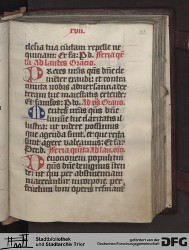 xvii.
clesia tua cuctam repelle ne
quiciam: Et fa: P d. Feria quar
ta Ad laudes Oracio.
Preces nras qs dne cle
menter exaudi: et contra
cuncta nobis aduersancia dex
teram tue maiestatis extende:
Et famlos: P d. Ad vs Oracio.
Mentes nras qs dne
lumine tue claritatis il
lustra: ut videre possimus
que agenda sunt. et que recta
sunt agere valeamus: Et fa:
Per d. Feria quinta Ad laudes. Oracio.
Deuocionem populi tui
qs dne benignus inten
de: ut qui per abstinenciam
macerantur in corpore. per
fructum boni operis reficiant
Stadtbibliothek
und Stadtarchiv Trier
gefördert von der
DFG
Deutschen Forschungsgemeinschaft